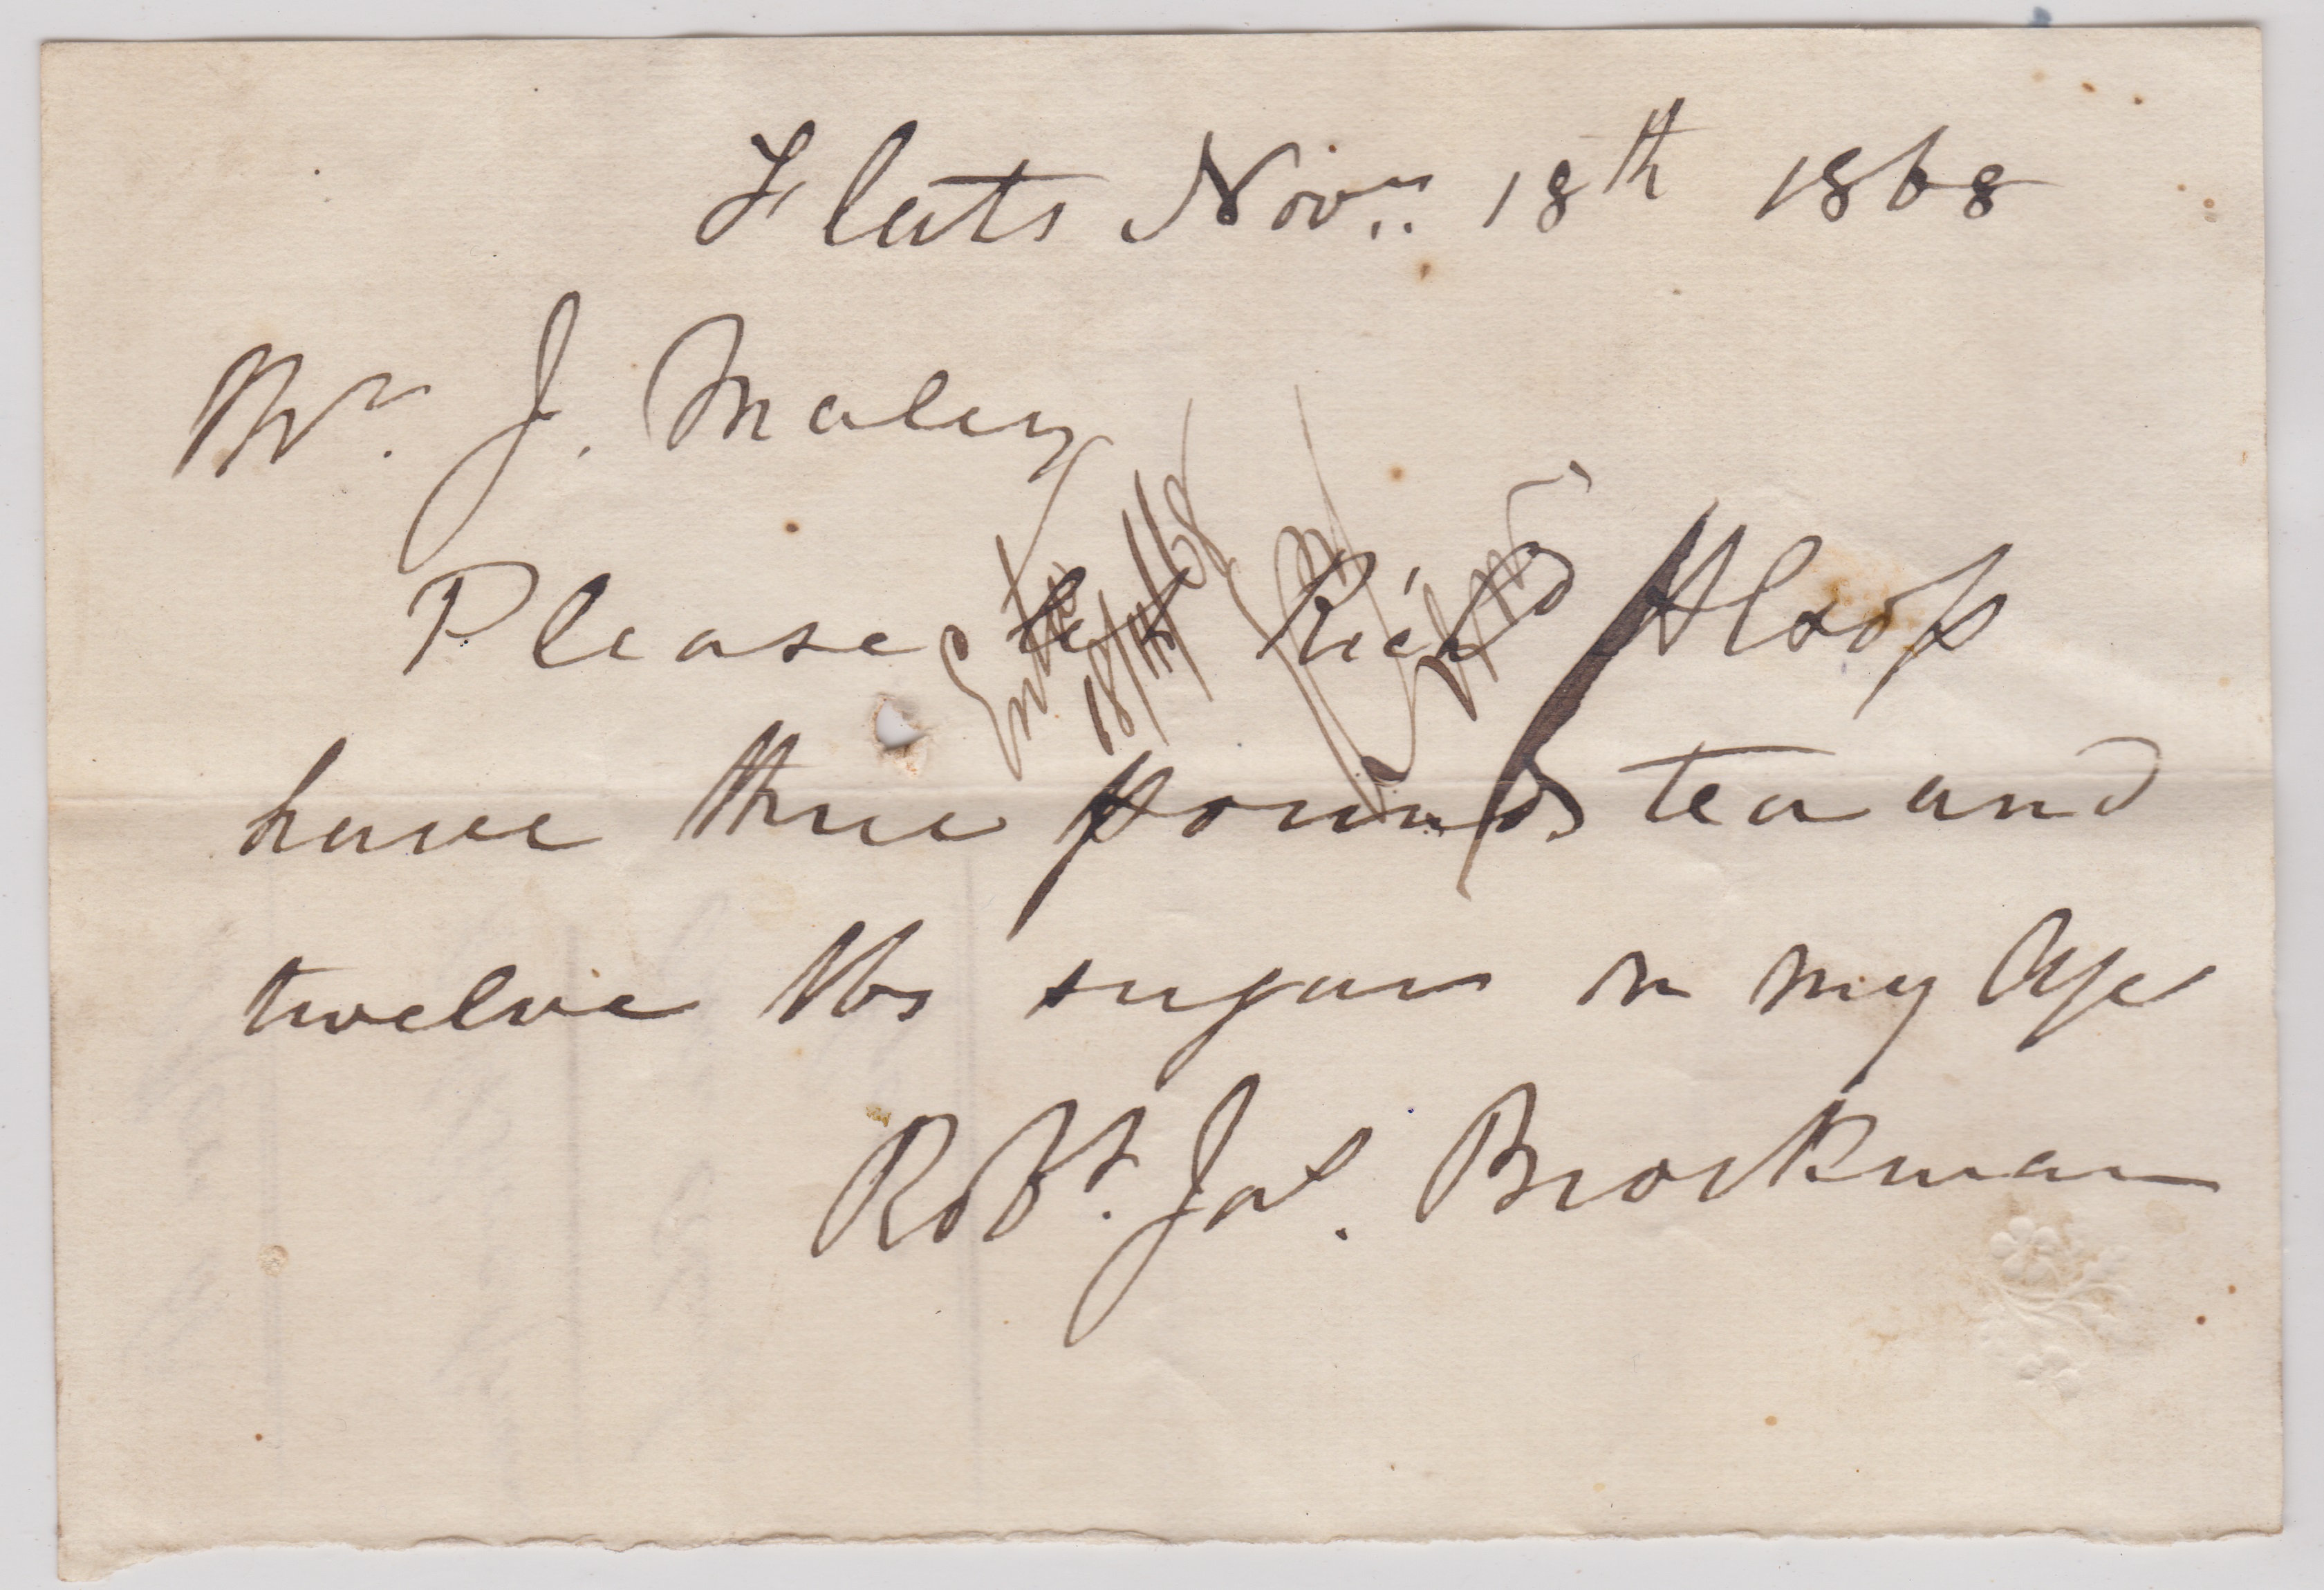 Flats Novr. 18th 1868
Mr. J. Maley
Please let Richd Alsop
have three pounds tea and
twelve lbs sugar on my a/c
Robt. Jas. Brockman
Entd
18/11/68